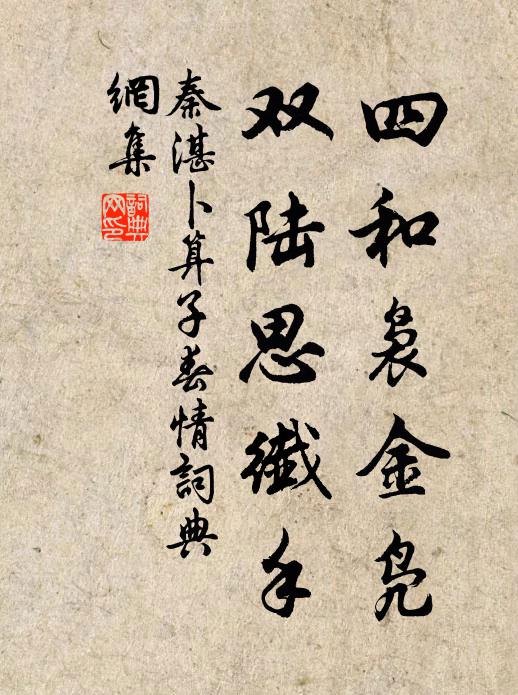 四和袅金凫
双陆思纤手
秦湛卜算子春情詞典
網集
詞典网印